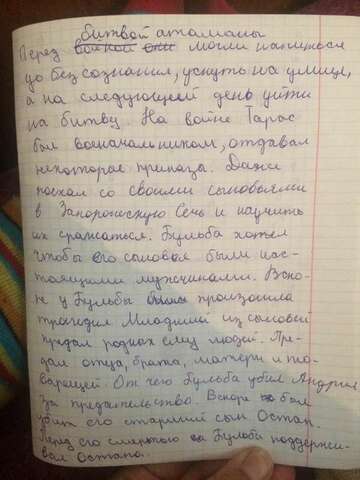 битвой атаманы
Перед войной они могли напиться
до без сознания, уснуть на улице,
а на следующей день уйти
на битву. На войне Тарас
был военачальником, отдавал
некоторое приказа. Даже
поехал со своими сыновьями
в Запорожскую Сечь и научить
их сражаться. Бульба хотел
чтобы его сыновья были нас-
тоящими мужчинами. Вско-
ре у Бульбы произошла
трагедия Младший из сыновей
придал родных ему людей. Пре-
дал отца, брата, матери и то-
варищей От чего Бульба убил Андрия
за предательство. Вскоре был
убит его старший сын Остап.
Перед его смертью Бульба поддержи-
вал Остапа.